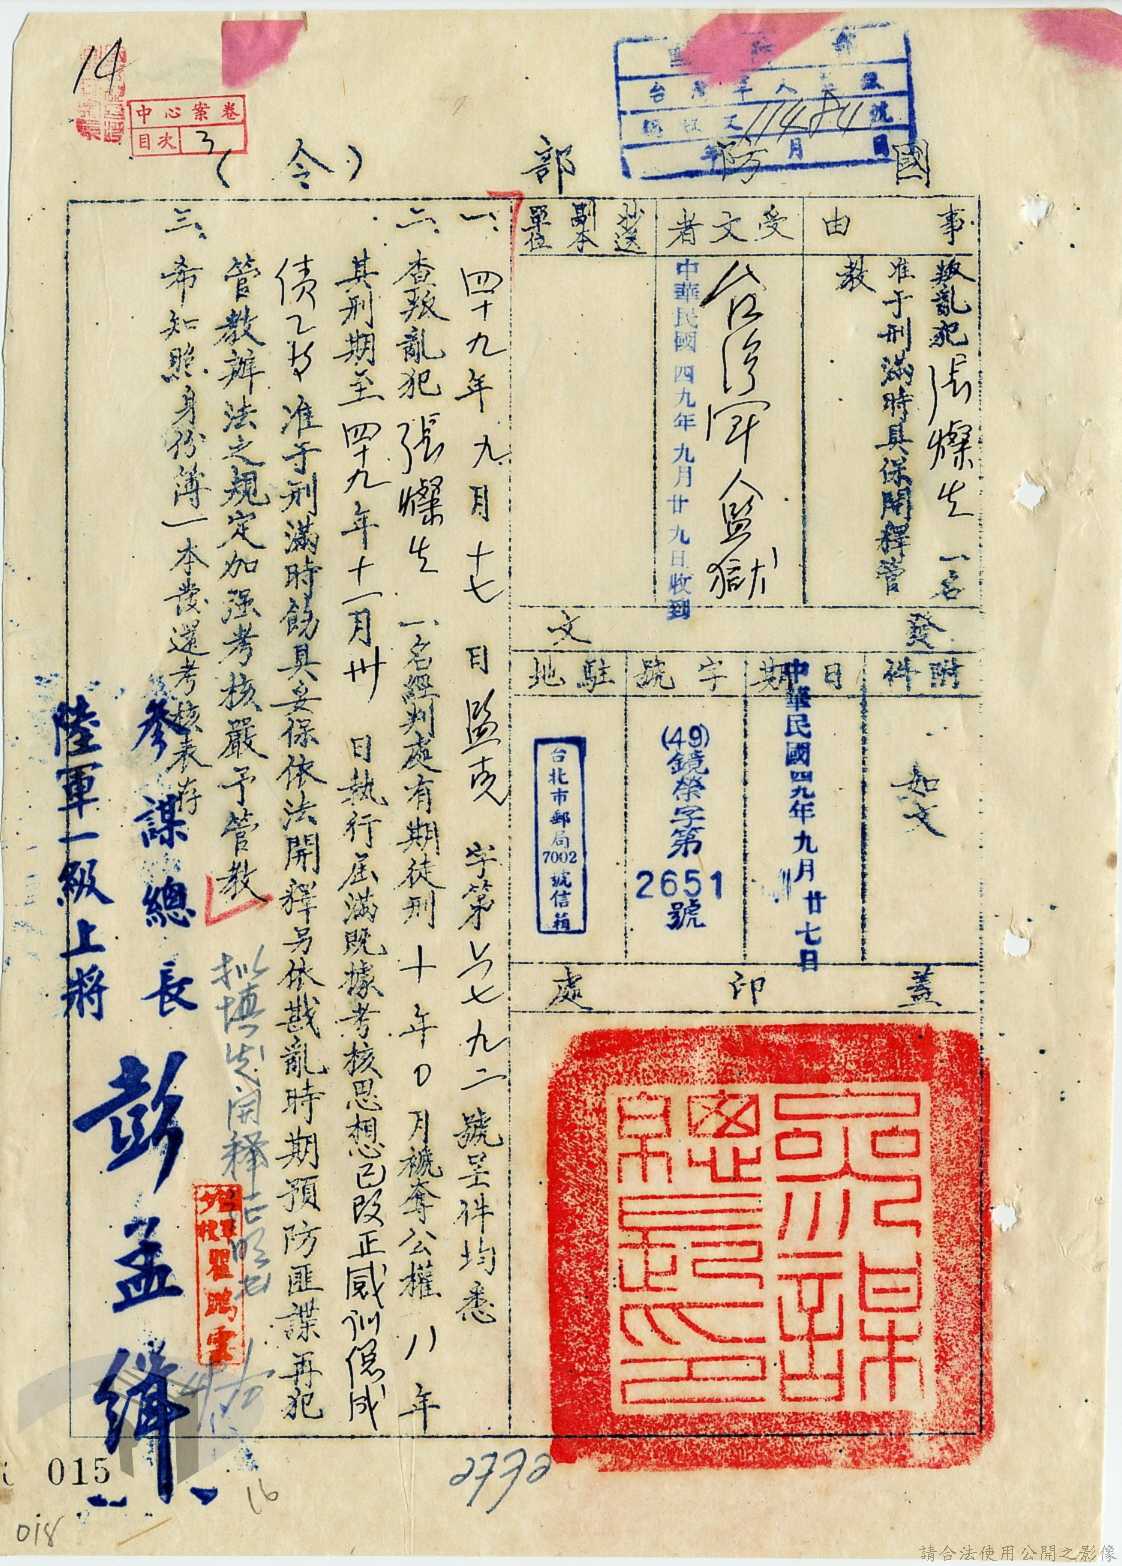 14
中心案卷
目次 3
國防部
(令)
事由
叛亂犯張燦生一名
准于刑滿時具保開釋管
教
受文者
台灣軍人監獄
中華民國四九年九月廿九日收到
抄送
副本
單位
發文
附件
如文
日期
中華民國四九年九月廿七日
字號
(49)鏡榮字第
2651
號
駐地
台北市郵局
7002
號信箱
蓋印處
一、四十九年九月十七日監克字第六七九二號呈件均悉
二、查叛亂犯張燦生一名經判處有期徒刑十年0月褫奪公權八年
其刑期至四十九年十一月卅日執行屆滿既據考核思想已改正感訓優成
績乙等准于刑滿時飭具妥保依法開釋另依戡亂時期預防匪諜再犯
管教辦法之規定加强考核嚴予管教
三、希知照身份簿一本發還考核表存
參謀總長
陸軍一級上將
彭孟緝
2772
015
018
16
請合法使用公開之影像